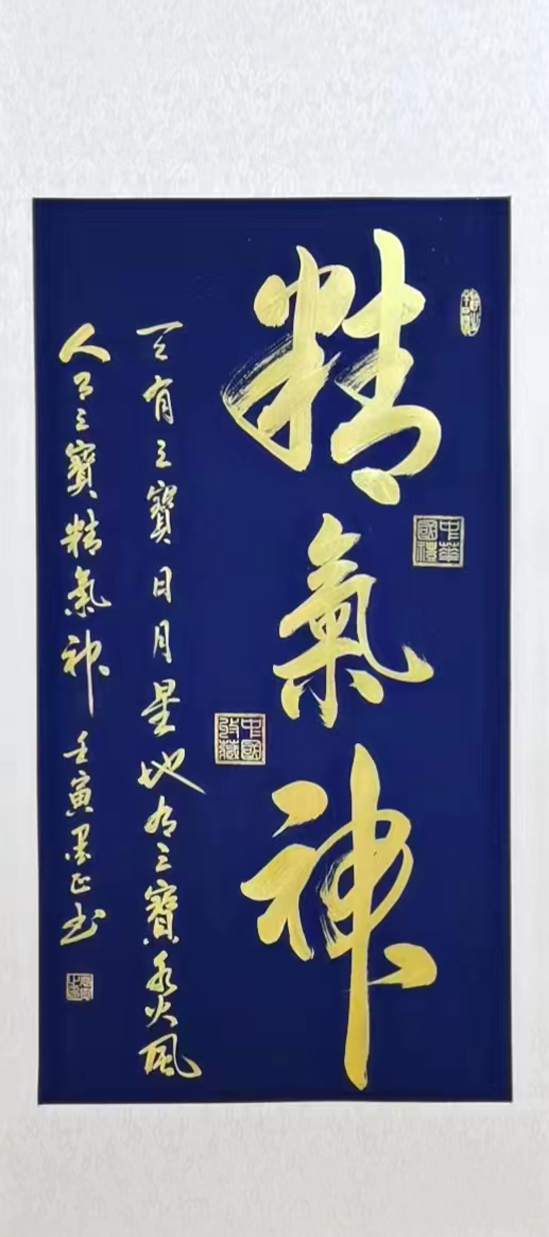 精氣神
天有三寶日月星地有三寶水火風
人有三寶精氣神 壬寅墨正书
中華國禮
中國收藏